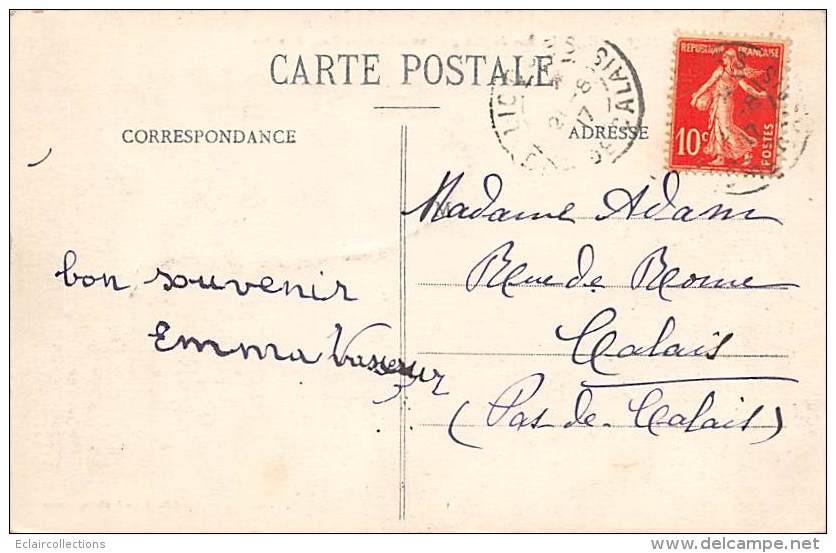 CARTE POSTALE
CORRESPONDANCE
ADRESSE
REPUBLIQUE FRANÇAISE
10c
POSTES
PAS DE CALAIS
21 - 8
17
Madame Adam
Rue de Rome
Calais
(Pas-de-Calais)
bon souvenir
Emma Vasseur
Eclaircollections
delcampe.net